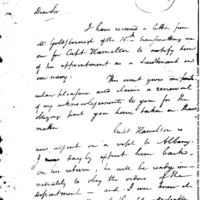 Dear Sir
I have received a letter from
Mr Goldsborough of the 15th transmitting me
one for Capt Hamilton to notify him
of his appointment as a Lieutenant in
our navy.
This event gives me
pleasure and claims a renewal
of my acknowledgements to you for the
part you have taken in this
matter
Capt Hamilton is
now, absent on a visit to Albany.
I day by expect him back
on his return, he will be ready im
mediately to obey the orders of the
department — and I